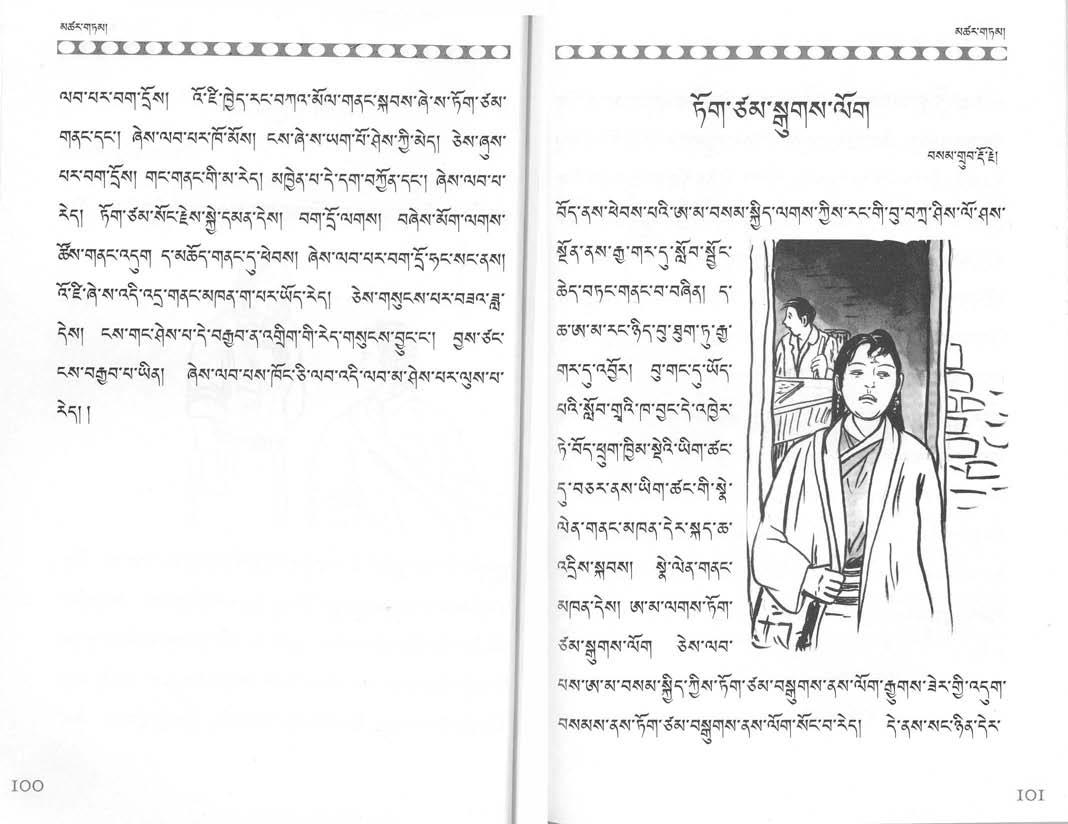 མཚར་གཏམ།
ལབ་པར་བག་དྲོས། འོ་ཇི་ཁྱེད་རང་བཀའ་མོལ་གནང་སྐབས་ཞེ་ས་ཏོག་ཙམ་
གནང་དང་། ཞེས་ལབ་པར་ཁོ་མོས། ངས་ཞེ་ས་ཡག་པོ་ཤེས་ཀྱི་མེད། ཅེས་ཞུས་
པར་བག་དྲོས། གང་གནང་གི་མ་རེད། མཁྱེན་པ་དེ་དག་བཀྱོན་དང་། ཞེས་ལབ་པ་
རེད། ཏོག་ཙམ་སོང་རྗེས་སྐྱེ་དམན་དེས། བག་དྲོ་ལགས། བཞེས་མོག་ལགས་
ཚོས་གནང་འདུག ད་མཆོད་གནང་དུ་ཕེབས། ཞེས་ལབ་པར་བག་དྲོ་ཧང་སང་ནས།
འོ་ཇི་ཞེ་ས་འདི་འདྲ་གནང་མཁན་ག་པར་ཡོད་རེད། ཅེས་གསུངས་པར་བཟའ་ཟླ་
དེས། ངས་གང་ཤེས་པ་དེ་བརྒྱབ་ན་འགྲིག་གི་རེད་གསུངས་བྱུང་ང་། བྱས་ཙང་
ངས་བརྒྱབ་པ་ཡིན། ཞེས་ལབ་པས་ཁོང་ཅི་ལབ་འདི་ལབ་མ་ཤེས་པར་ལུས་པ་
རེད། །
100
མཚར་གཏམ།
ཏོག་ཙམ་སྒུགས་ལོག
བསམ་གྲུབ་རྡོ་རྗེ།
བོད་ནས་ཕེབས་པའི་ཨ་མ་བསམ་སྐྱིད་ལགས་ཀྱིས་རང་གི་བུ་བཀྲ་ཤིས་ལོ་ཤས་
སྔོན་ནས་རྒྱ་གར་དུ་སློབ་སྦྱོང་
ཆེད་བཏང་གནང་བ་བཞིན། ད་
ཆ་ཨ་མ་རང་ཉིད་བུ་ཐུག་ཏུ་རྒྱ་
གར་དུ་འབྱོར། བུ་གང་དུ་ཡོད་
པའི་སློབ་གྲྭའི་ཁ་བྱང་དེ་འཁྱེར་
ཏེ་བོད་ཕྲུག་ཁྱིམ་སྡེའི་ཡིག་ཚང་
དུ་བཅར་ནས་ཡིག་ཚང་གི་སྣེ་
ལེན་གནང་མཁན་དེར་སྐད་ཆ་
འདྲིས་སྐབས། སྣེ་ལེན་གནང་
མཁན་དེས། ཨ་མ་ལགས་ཏོག་
ཙམ་སྒུགས་ལོག ཅེས་ལབ་
པས་ཨ་མ་བསམ་སྐྱིད་ཀྱིས་ཏོག་ཙམ་བསྒུགས་ནས་ལོག་རྒྱུགས་ཟེར་གྱི་འདུག་
བསམས་ནས་ཏོག་ཙམ་བསྒུགས་ནས་ལོག་སོང་བ་རེད། དེ་ནས་སང་ཉིན་དེར་
101